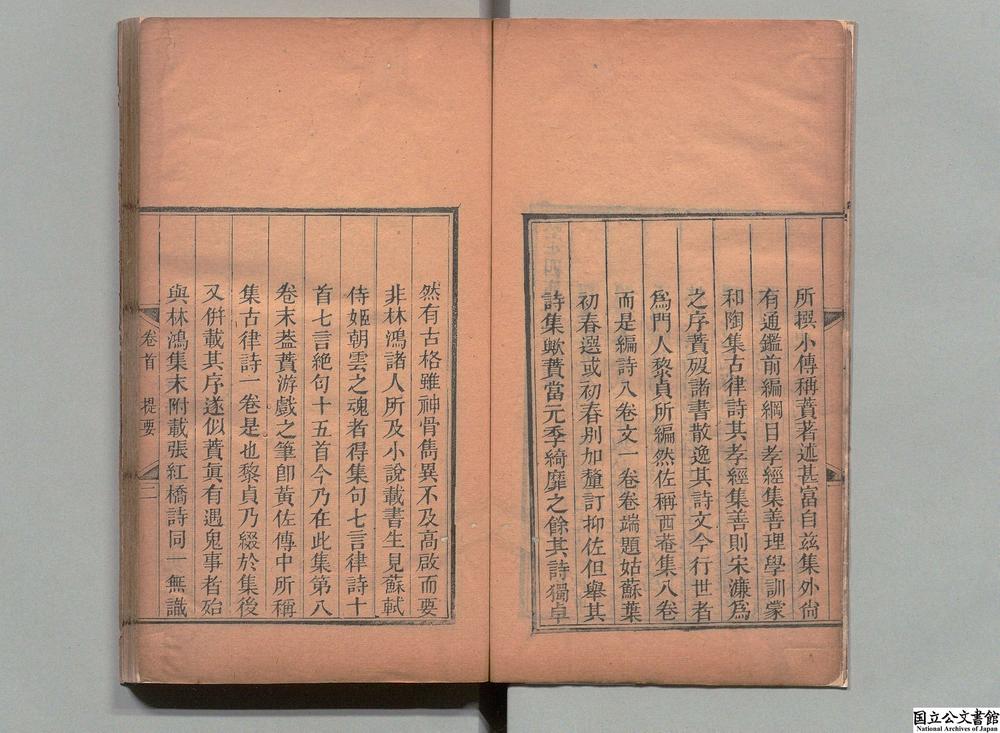 所撰小傳稱蕡著述甚富自兹集外尙
有通鑑前編綱目孝經集善理學訓蒙
和陶集古律詩其孝經集善則宋濂爲
之序蕡歿諸書散逸其詩文今行世者
爲門人黎貞所編然佐稱西菴集八卷
而是編詩八卷文一卷卷端題姑蘇葉
初春選或初春别加釐訂抑佐但舉其
詩集歟蕡當元季綺靡之餘其詩獨卓
然有古格雖神骨雋異不及高啟而要
非林鴻諸人所及小說載書生見蘇軾
侍姬朝雲之魂者得集句七言律詩十
首七言絶句十五首今乃在此集第八
卷末葢蕡游戲之筆卽黃佐傳中所稱
集古律詩一卷是也黎貞乃綴於集後
又併載其序遂似蕡眞有遇鬼事者殆
與林鴻集末附載張紅橋詩同一無識
卷首 提要 二
国立公文書館
National Archives of Japan